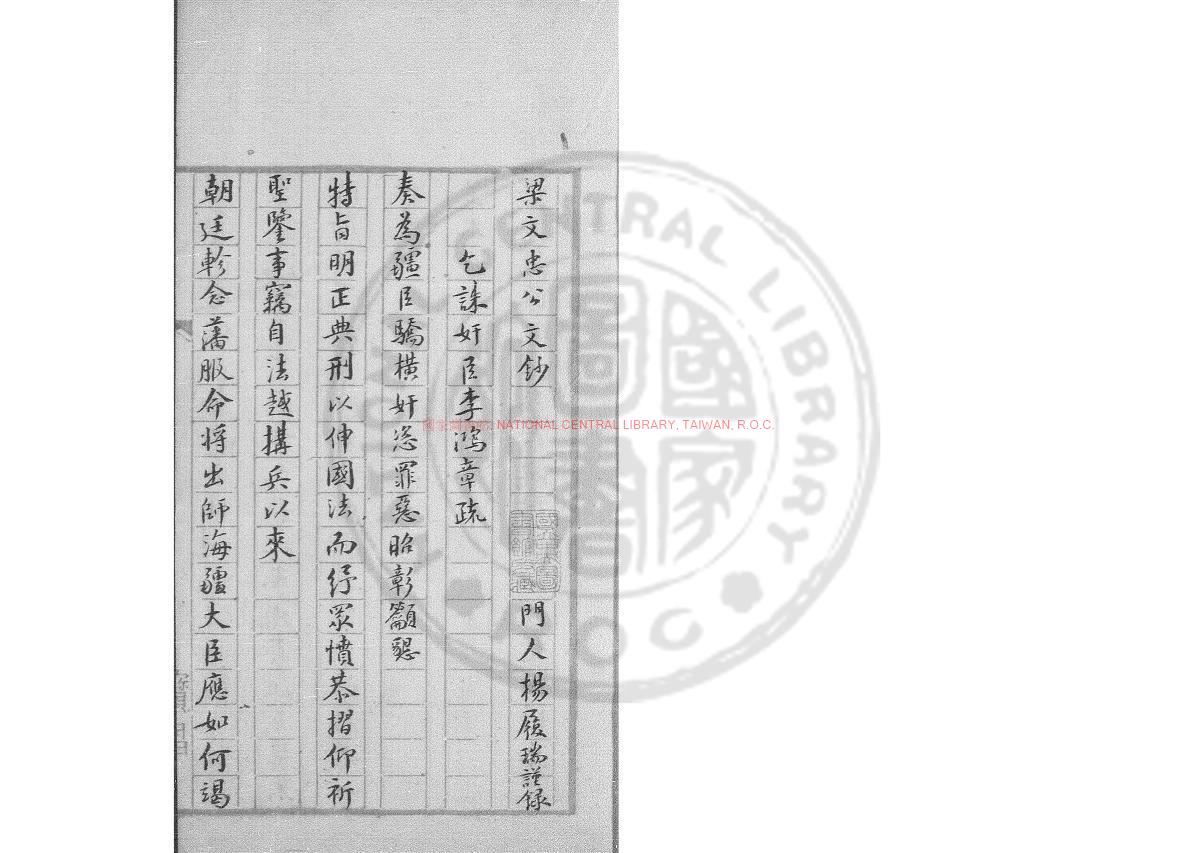 梁文忠公文鈔 門人楊履瑞謹録
乞誅奸臣李鴻章疏
奏為疆臣驕橫奸恣罪惡昭彰籲懇
特旨明正典刑以伸國法而紓眾憤恭摺仰祈
聖鑒事竊自法越搆兵以來
朝廷軫念藩服命將出師海疆大臣應如何竭
國家圖書館
國立中央圖書館藏
國家圖書館, NATIONAL CENTRAL LIBRARY, TAIWAN, R.O.C.
NATIONAL CENTRAL LIBRARY
R.O.C